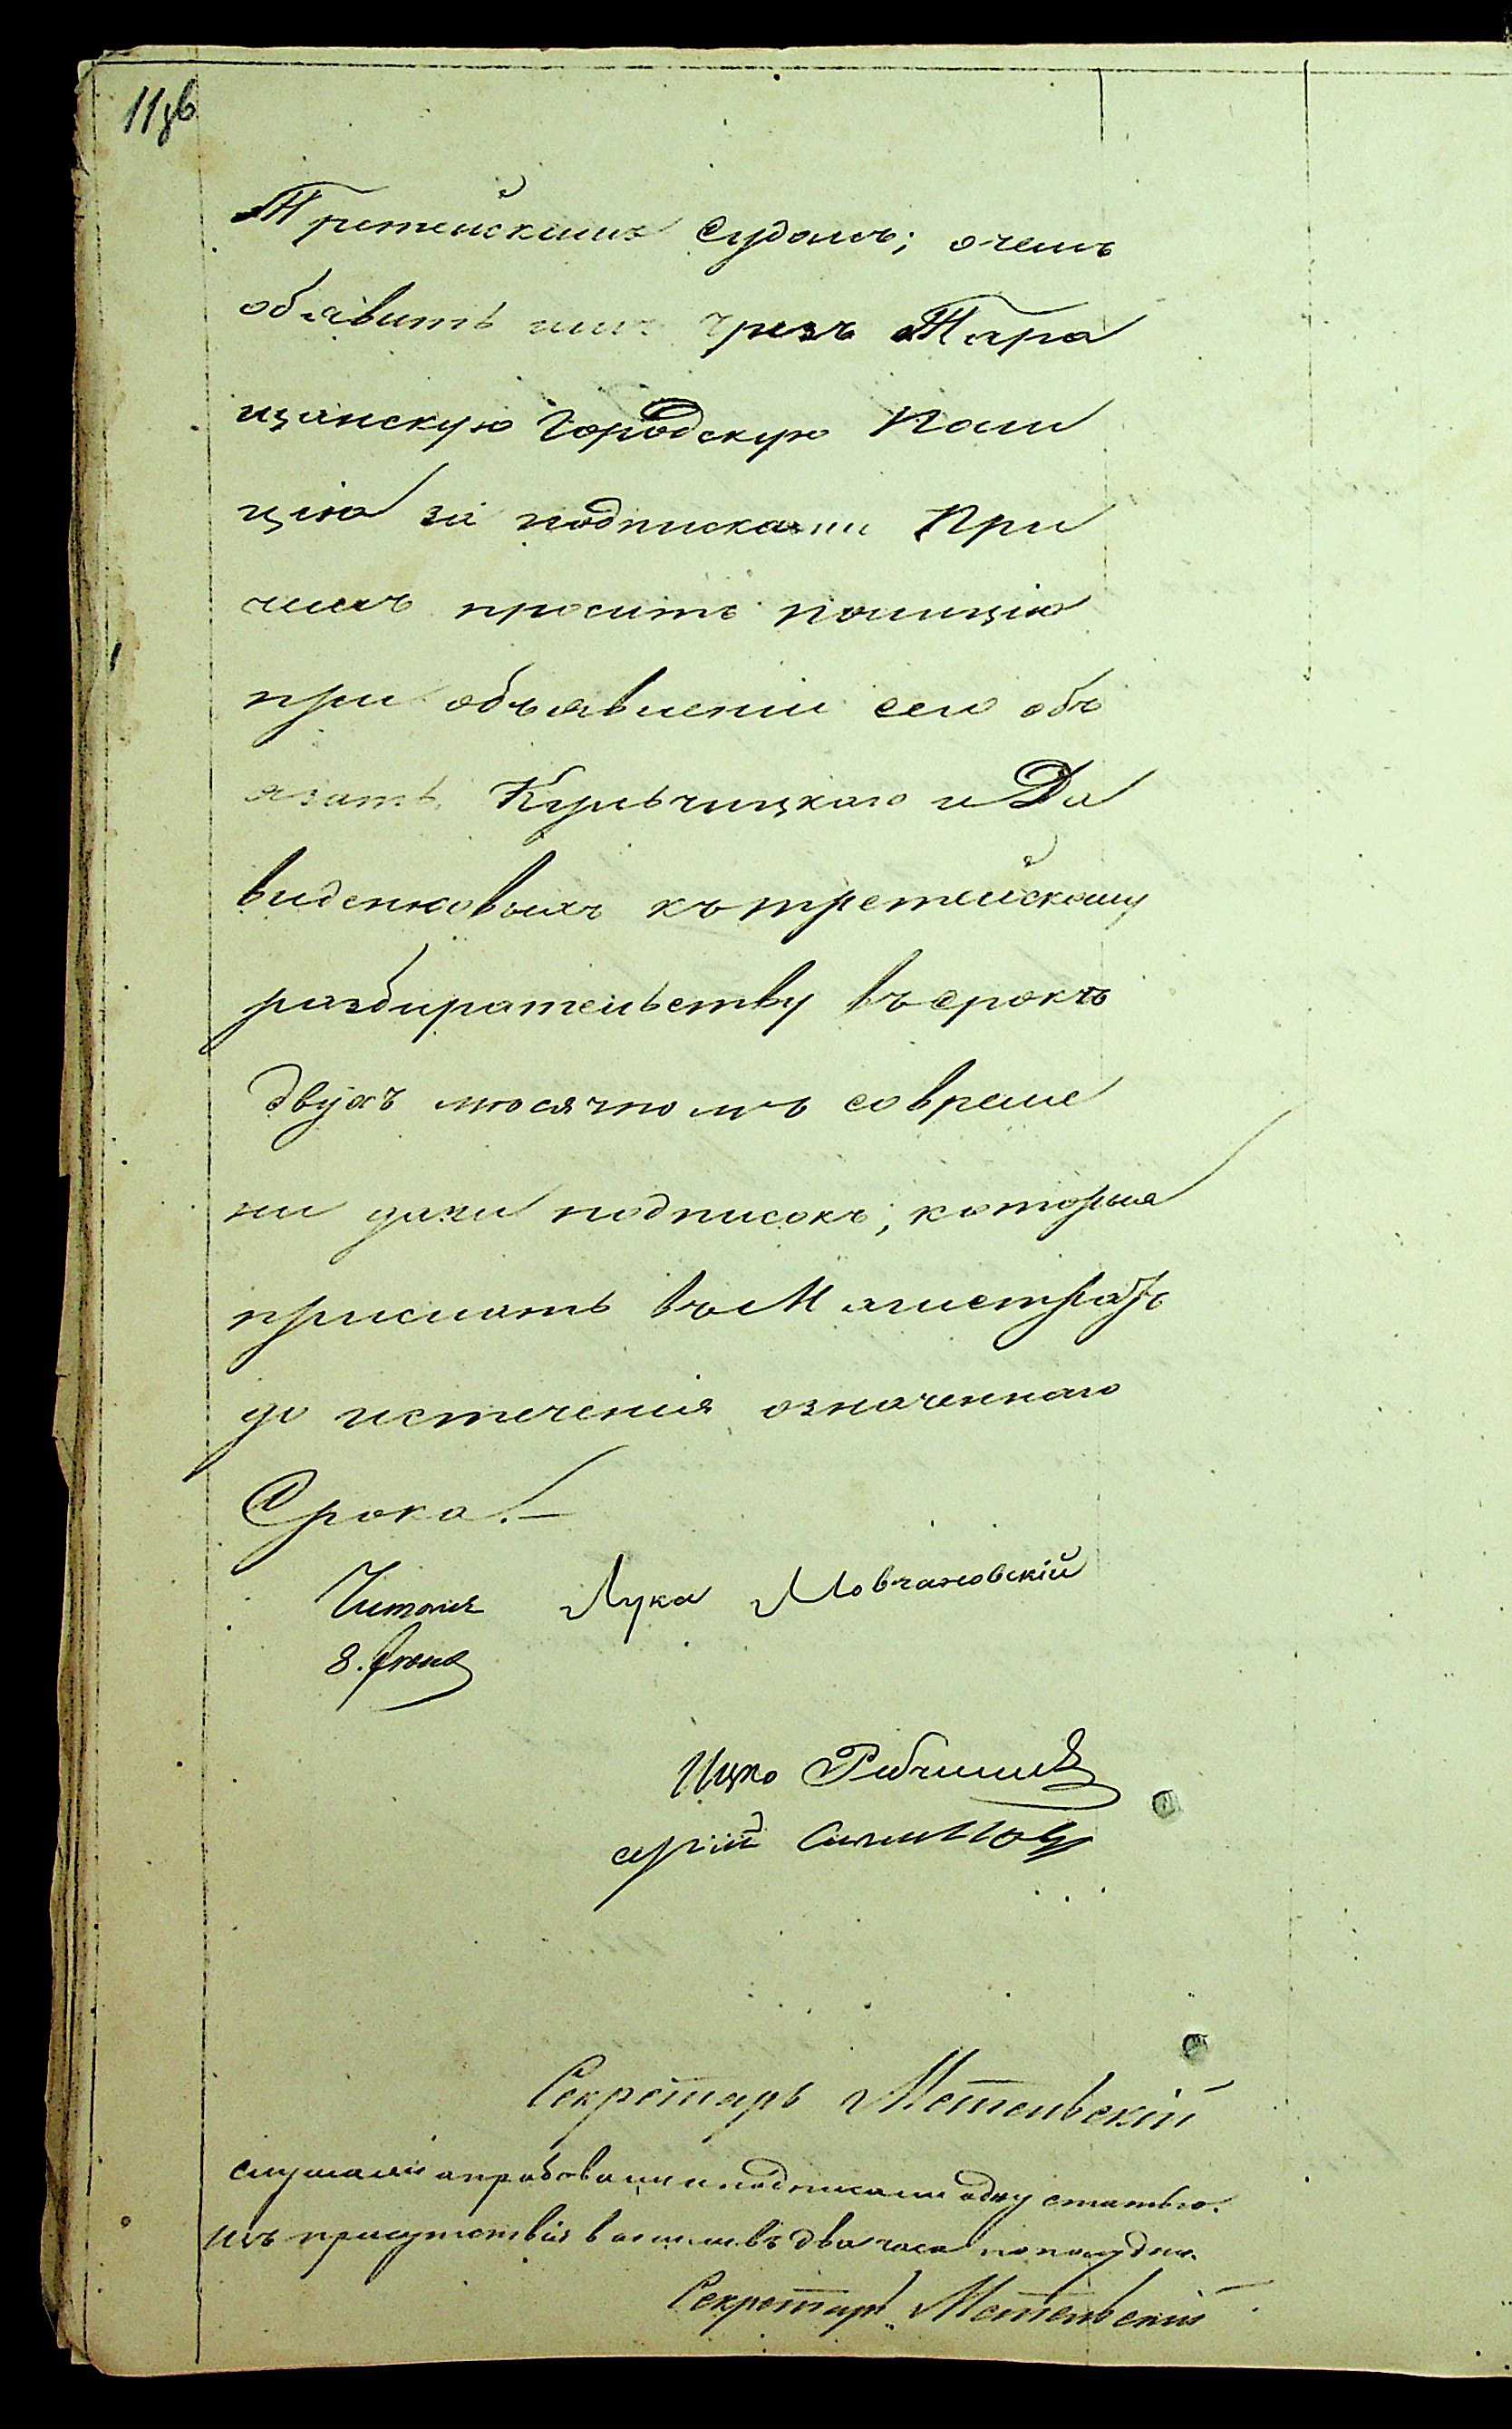 Третейскимъ Судомъ; очемъ
обявить имъ чрезъ Тара
щанскую Городскую Поли
цію за подписками При
чемъ просить полицію
при объявленіи сего объ
язать Кульчицкаго и Да
виденковыхъ къ третейскому
разбирательству въ срокъ
двухъ мюсячномъ со време
ни дачи подписокъ, которыя
прислать въ Магистратъ
до истеченія означеннаго
Срока. —
Читалъ Лука Мовчановскій
8. Іюня
Ицко
Секретарь Метельскій
слушали апробовали и подписали одну статью.
изъ присутствія вышли въ два часа по полудни.
Секретарь Метельскій